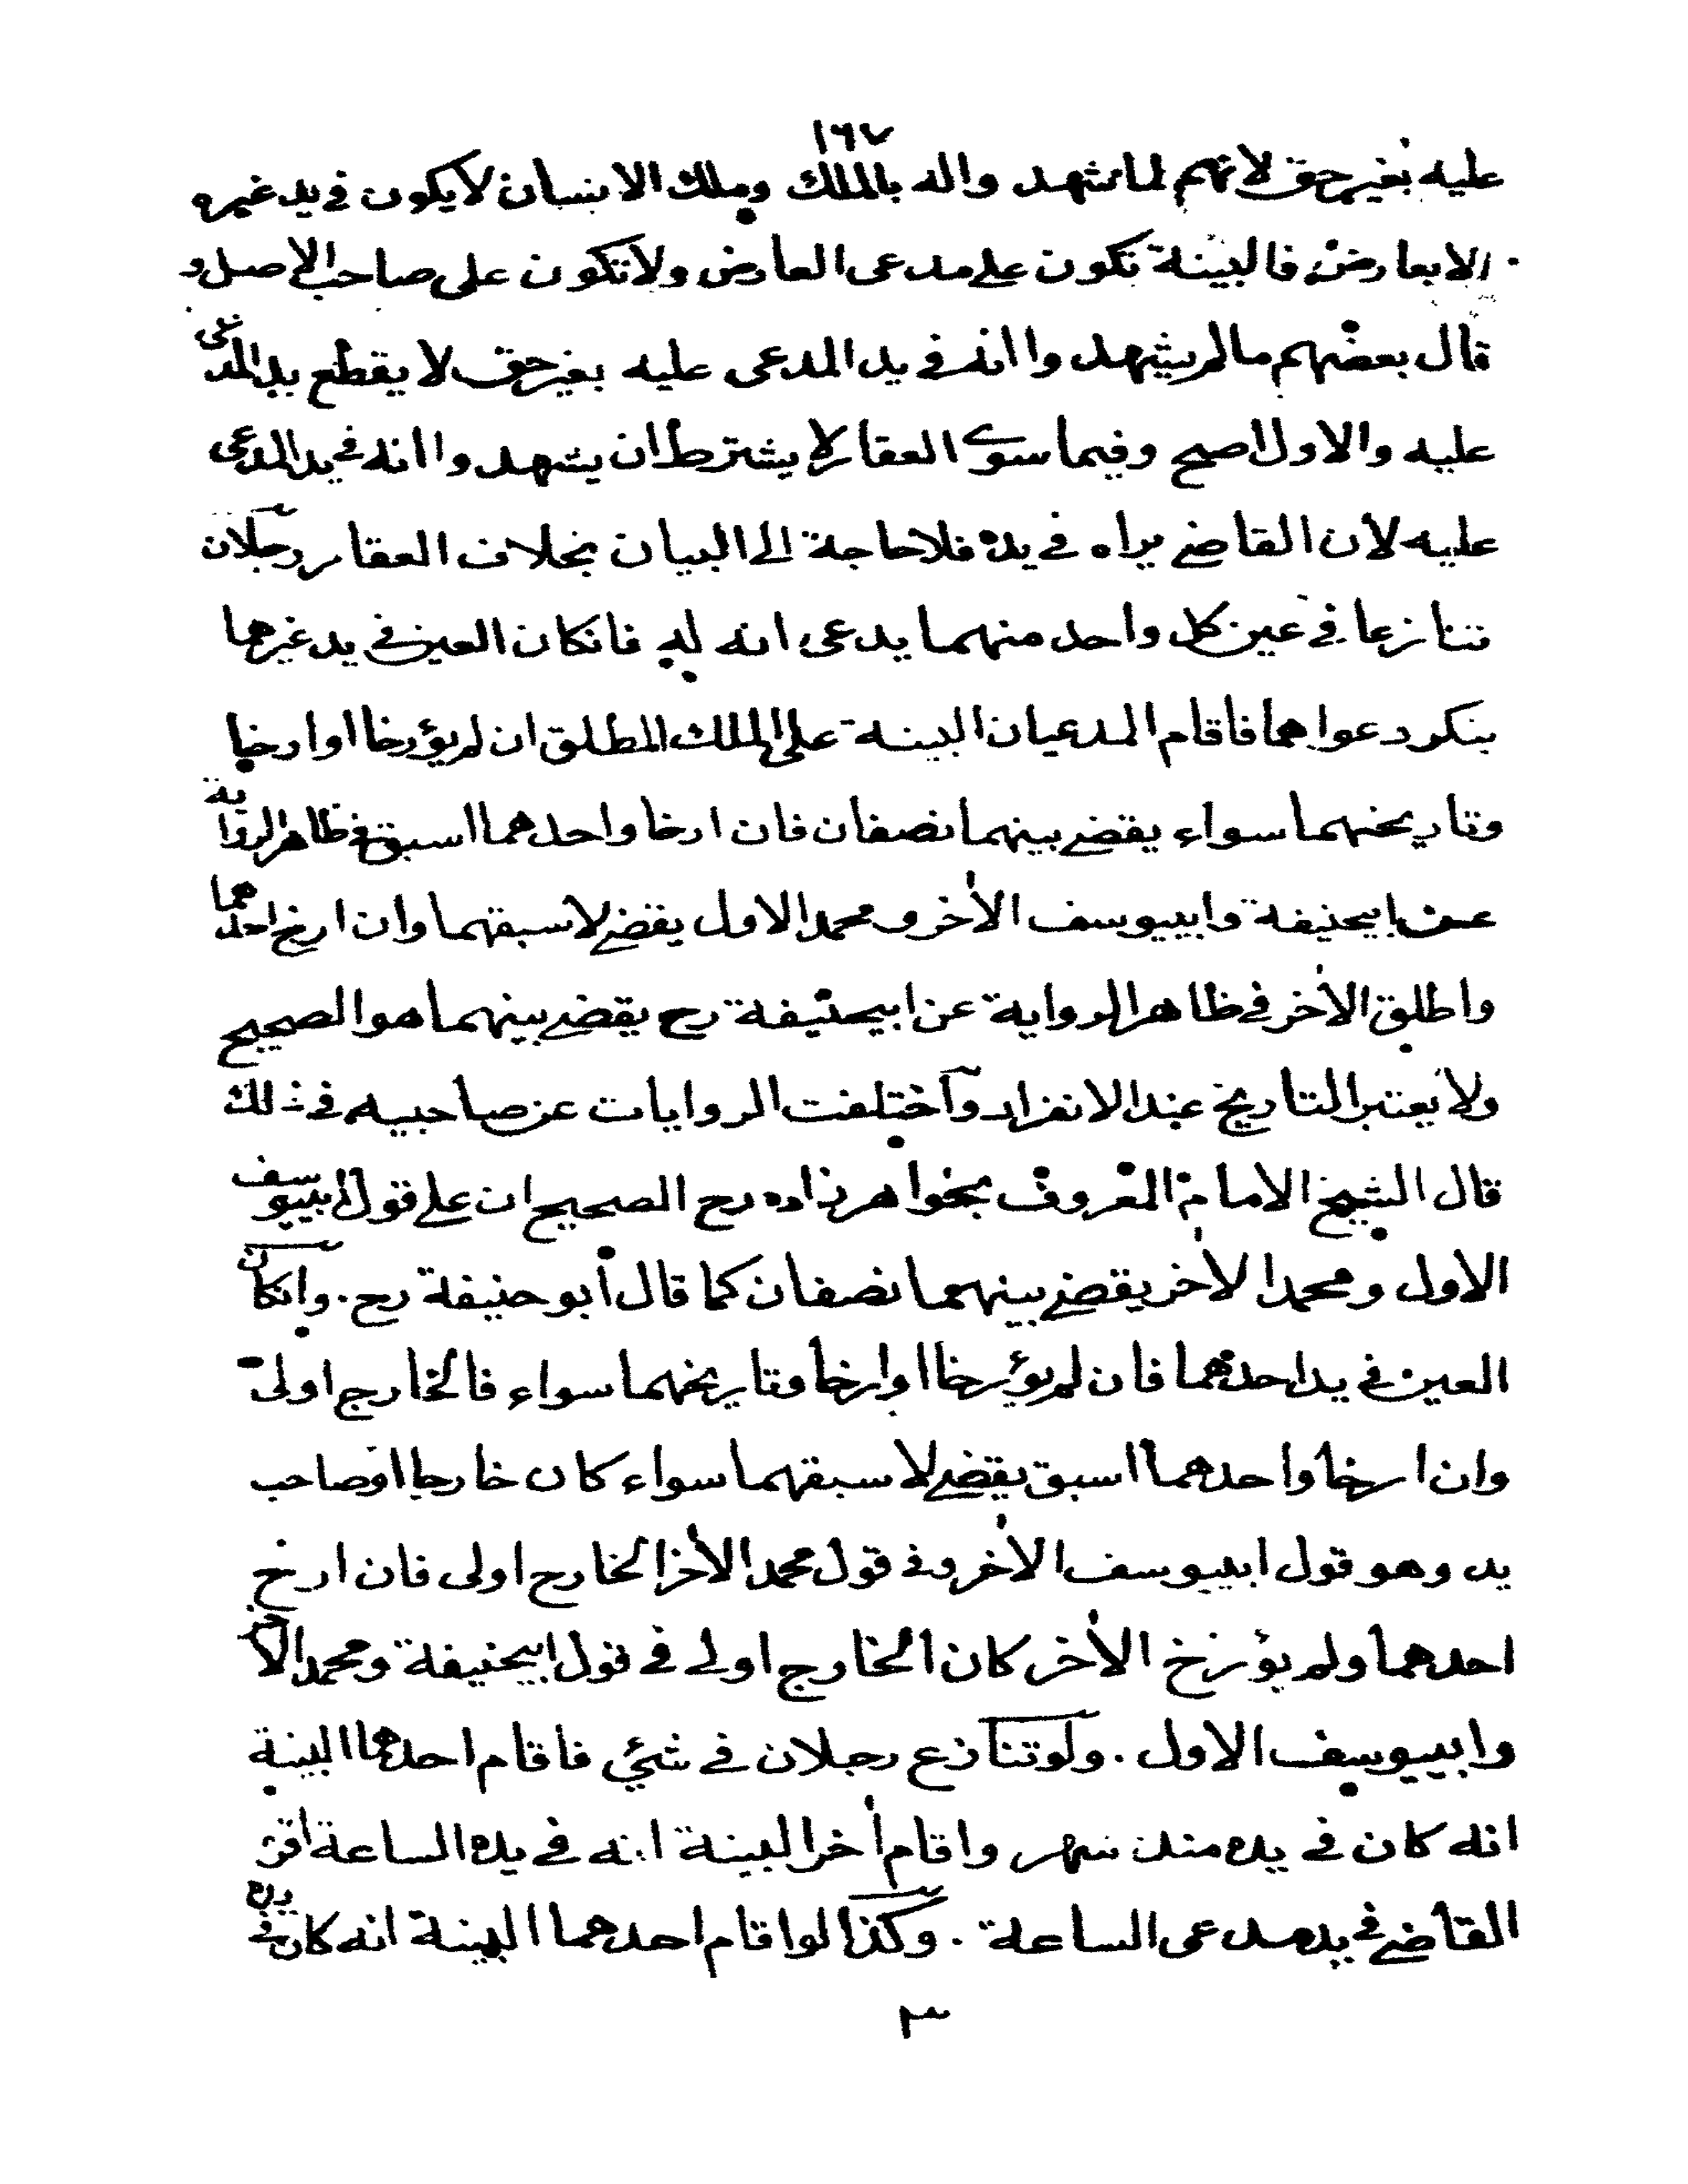 ١٦٧
عليه بغير حق لانهم لما شهد واله بالملك وملك الانسان لا يكون في يد غيره
الا بعارض فالبينة تكون على مدعى العارض ولا تكون على صاحب الاصل و
قال بعضهم مالم يشهد وا انه في يد المدعى عليه بغير حق لا يقطع يد المدعى
عليه والاول اصح وفيما سوى العقار لا يشترط ان يشهد وا انه في يد المدعى
عليه لان القاضي يراه في يده فلا حاجة الى البيان بخلاف العقار رجلان
تنازعا في عين كل واحد منهما يدعى انه له فانكان العين في يد غيرهما
ينكر دعواهما فاقام المدعيان البينة على الملك المطلق ان لم يؤرخا او ارخا
وتاريخهما سواء يقضي بينهما نصفان فان ارخا واحدهما اسبق في ظاهر الرواية
عن ابيحنيفة وابييوسف الأخر ومحمد الاول يقضي لاسبقهما وان ارخ احدهما
واطلق الأخر في ظاهر الرواية عن ابيحنيفة رح يقضي بينهما هو الصحيح
ولا يعتبر التاريخ عند الانفراد وآختلفت الروايات عن صاحبيه في ذلك
قال الشيخ الامام المعروف بخواهرزاده رح الصحيح ان على قول ابييوسف
الاول ومحمد الأخر يقضي بينهما نصفان كما قال أبو حنيفة رح . وانكان
العين في يد احدهما فان لم يؤرخا او ارخا وتاريخهما سواء فالخارج اولى
وان ارخا واحدهما اسبق يقضي لاسبقهما سواء كان خارجا او صاحب
يد وهو قول ابييوسف الأخر وفي قول محمد الأخر الخارج اولى فان ارخ
احدهما ولم يؤرخ الأخر كان الخارج اولى في قول ابيحنيفة ومحمد الأخر
وابييوسف الاول . ولو تنازع رجلان في شئي فاقام احدهما البينة
انه كان في يده منذ شهر واقام أخر البينة انه في يده الساعة اقر
القاضي في يد مدعى الساعة . وكذا لو اقام احدهما البينة انه كان في يده
٣